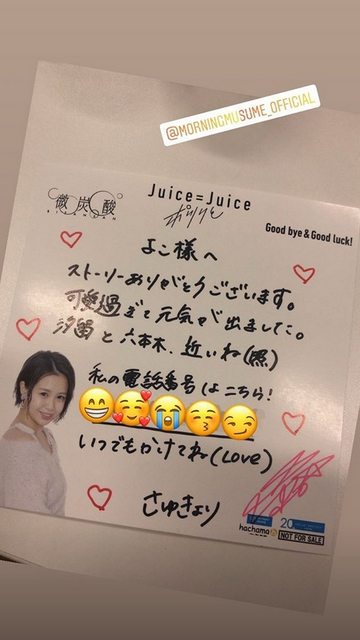 @MORNINGMUSUME_OFFICIAL
微炭酸
BITANSAN
Juice=Juice
ポツリと
Good bye & Good luck!
よこ様へ
ストーリーありがとうございます。
可愛過ぎて元気が出ました。
汐留と六本木、近いね(照)
私の電話番号はこちら!
いつでもかけてね(Love)
さゆきより
hachama
20
NOT FOR SALE